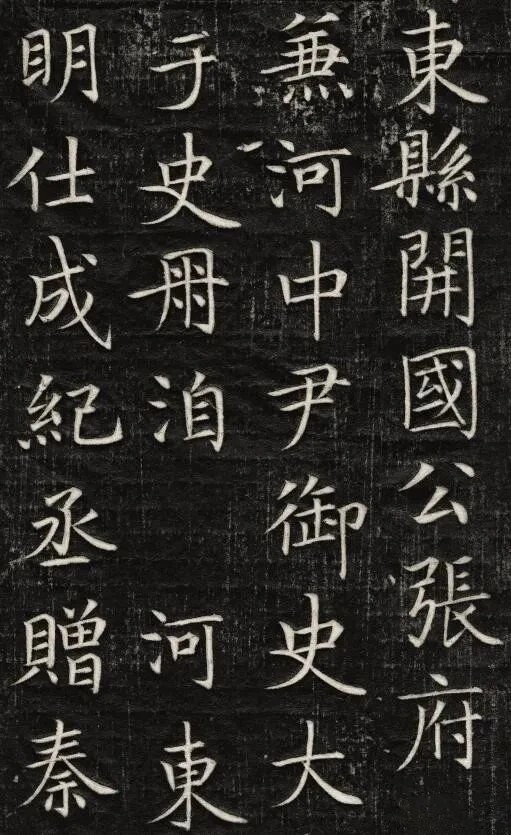 東縣開國公張府
兼河中尹御史大
于史冊洎 河東
明仕成紀丞贈秦